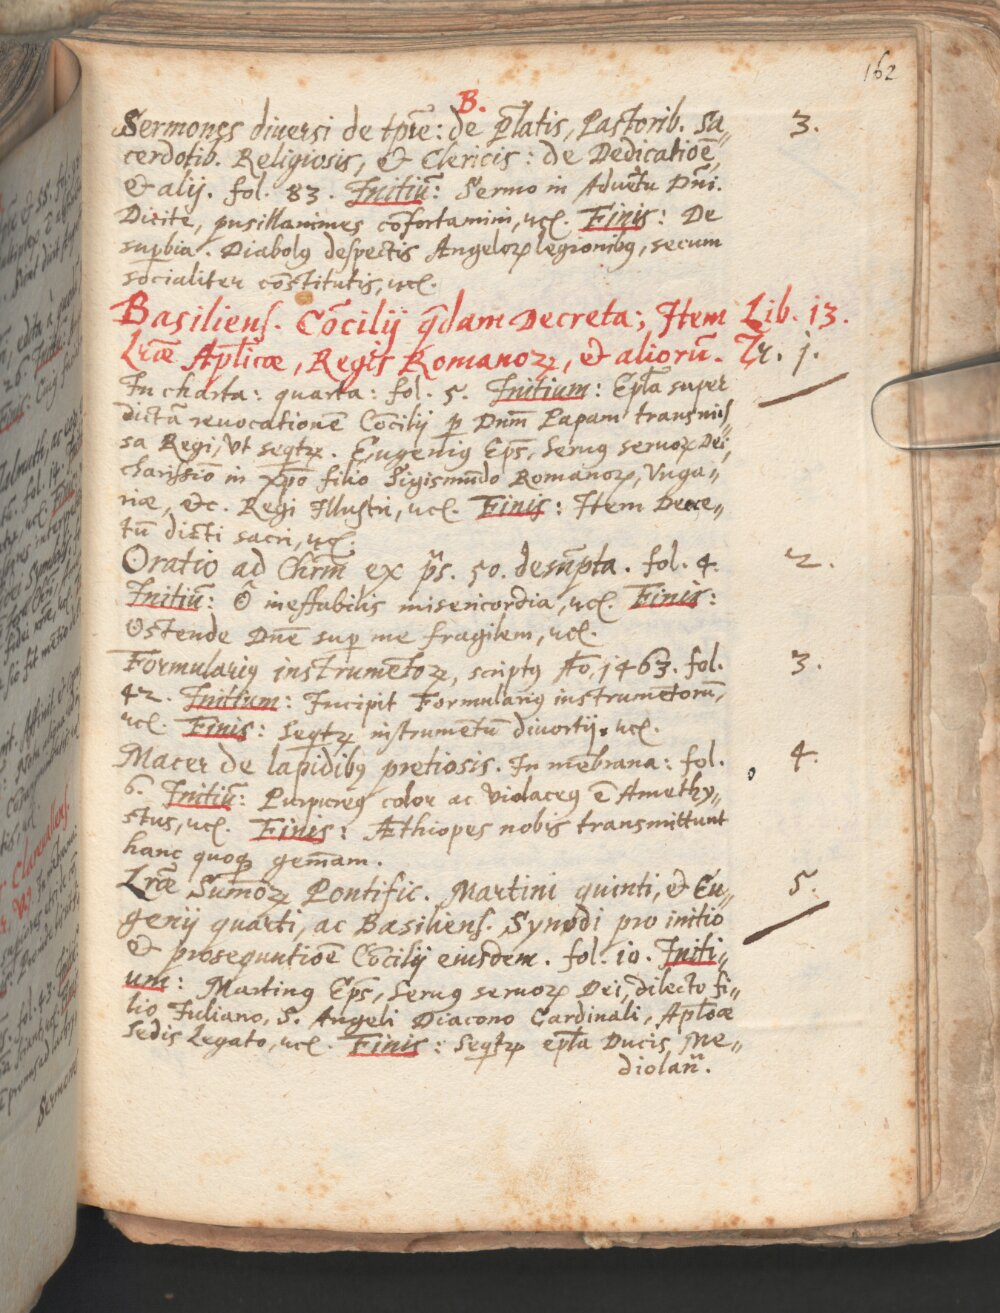 162
B.
Sermones diversi de tp̄re: de p̄latis, Pastorib. Sa„ 3.
cerdotib. Religiosis, & Clericis: de Dedicatiōe,
& alij. fol. 83. Initiū: Sermo in Advētu Dn̄i.
Dicite, pusillanimes cōfortamini, ꝛcꝭ. Finis: De
supbia. Diabolꝰ despectis Angeloꝝ legionibꝰ, secum
socialiter cōstitutis, ꝛcꝭ.
Basiliens. Cōcilij q̄dam Decreta; Item Lib. 13.
Lr̄æ Ap̄licæ, Regis Romanoꝝ, & aliorū. Tr. j.
In charta: quarta: fol. 5. Initium: Ep̄la super
dictā revocationē Cōcilij ꝑ Dn̄m Papam transmis„
sa Regi, Vt seqtꝝ. Eugeniꝰ Ep̄s, Serꝰ servoꝝ Dei,
charissīo in Xp̄o filio Sigismūdo Romanoꝝ, Vnga„
riæ, &c. Regi Illustri, ꝛcꝭ. Finis: Item Decre„
tū dicti sacri, ꝛcꝭ
Oratio ad Chrm̄ ex ps. 50. desūpta. fol. 4. 2.
Initiū: Ō ineffabilis misericordia, ꝛcꝭ. Finis:
Ostende Dn̄e suꝑ me fragilem, ꝛcꝭ.
Formulariꝰ instrumētoꝝ, scriptꝰ Ao. 1463. fol. 3.
42. Initium: Incipit Formulariꝰ instrumētorū,
ꝛcꝭ. Finis: Seqtꝝ instrumētū divortij. ꝛcꝭ.
Macer de lapidibꝰ pretiosis. In mēbrana: fol. 4.
6. Initiū: Purpureꝰ color ac violaceꝰ ē Amethy„
stus, ꝛcꝭ. Finis: Æthiopes nobis transmittunt
hanc quoqꝫ gem̄am.
Lr̄æ Sum̄oꝝ Pontific. Martini quinti, & Eu„ 5.
genij quarti, ac Basiliens. Synodi pro initio
& prosequutiōe Cōcilij eiusdem. fol. 10. Initi„
um: Martinꝰ Ep̄s, Serꝰ servoꝝ Dei, dilecto fi„
lio Iuliano, S. Angeli Diacono Cardinali, Ap̄licæ
Sedis Legato, ꝛcꝭ. Finis: Seqtꝝ ep̄la Ducis Me„
diolan̄.